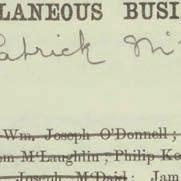 LANEOUS BUSI
Patrick M'
Wm. Joseph O'Donnell ;
om M'Laughlin ; Philip Ko
Joseph M'Daid ; Jam